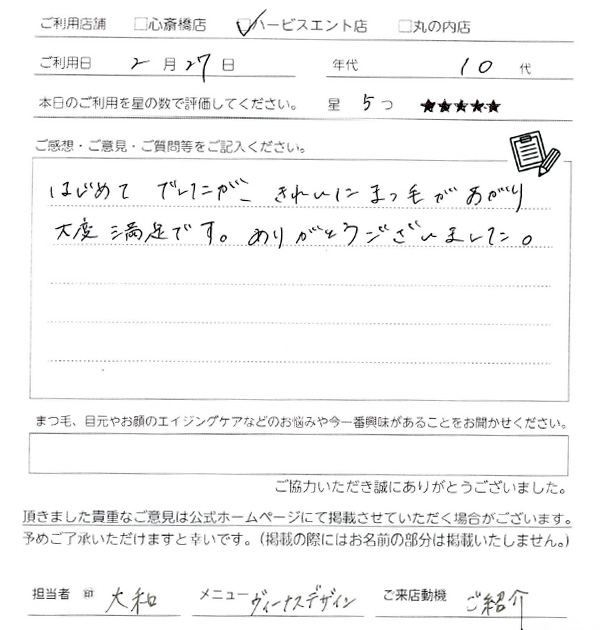 ご利用店舗 □心斎橋店 ☑ハービスエント店 □丸の内店
ご利用日 2月27日 年代 10代
本日のご利用を星の数で評価してください。 星 5つ ★★★★★
ご感想・ご意見・ご質問等をご記入ください。
はじめて でしたが、きれいにまつ毛があがり
大変満足です。ありがとうございました。
まつ毛、目元やお顔のエイジングケアなどのお悩みや今一番興味があることをお聞かせください。
ご協力いただき誠にありがとうございました。
頂きました貴重なご意見は公式ホームページにて掲載させていただく場合がございます。
予めご了承いただけますと幸いです。（掲載の際にはお名前の部分は掲載いたしません。）
担当者 ㊞ 大和 メニュー ヴィーナスデザイン ご来店動機 ご紹介